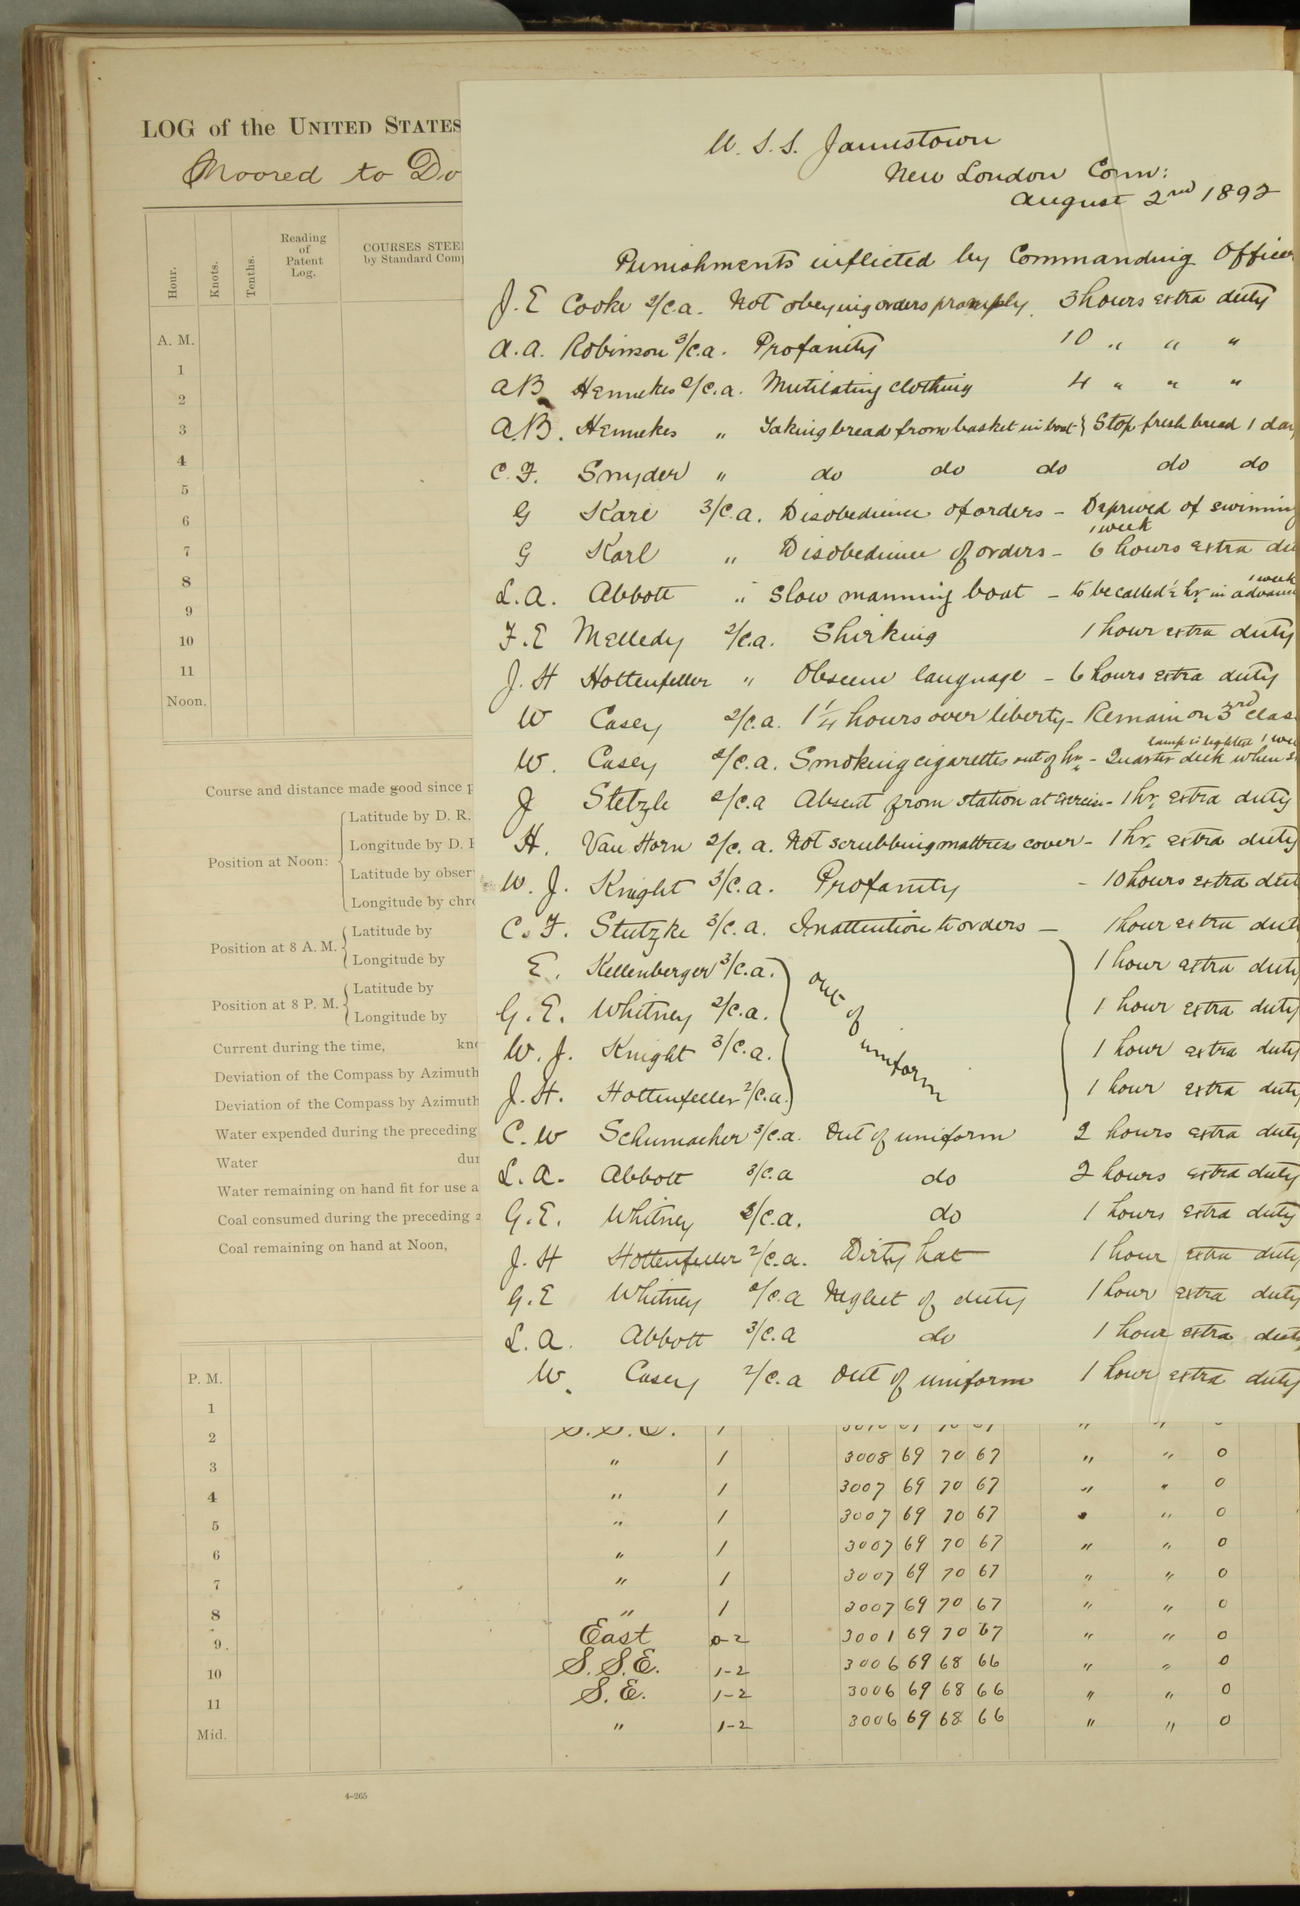 LOG of the UNITED STATES
Moored to Do
U. S. S. Jamestown
New London Conn:
August 2nd 1892
Punishments inflicted by Commanding Officer
J. E Cooke 2/c.a. Not obeying orders promptly. 3 hours extra duty
A. A. Robinson 3/c.a. Profanity 10 " " "
A B Hennekes 2/c.a. Mutilating clothing 4 " " "
A. B. Hennekes " Taking bread from basket in boat } Stop fresh bread 1 day
C. F. Snyder " do do do do do
G Karl 3/c.a. Disobedience of orders – Deprived of swimming
1 week
G Karl " Disobedience of orders – 6 hours extra du
L. A. Abbott " Slow manning boat – to be called ½ hr. in advance
1 week
F. E Melledy 2/c.a. Shirking 1 hour extra duty
J. H Hottenfeller " Obscene language – 6 hours extra duty
W Casey 2/c.a. 1 1/4 hours over liberty – Remain on 3rd clas
W. Casey 2/c.a. Smoking cigarettes out of hrs – Quarter deck when
lamp is lighted 1 wee
J Stetzle 2/c.a Absent from station at exercise – 1 hr. extra duty
H. Van Horn 2/c.a. Not scrubbing mattress cover – 1 hr. extra duty
W. J. Knight 3/c.a. Profanity – 10 hours extra dut
C. F. Stutzke 3/c.a. Inattention to orders – 1 hour extra dut
E. Kellenberger 3/c.a. 1 hour extra duty
G. E. Whitney 2/c.a. 1 hour extra duty
W. J. Knight 3/c.a. 1 hour extra duty
J. H. Hottenfeller 2/c.a. 1 hour extra duty
out of uniform
C. W Schumacher 3/c.a. Out of uniform 2 hours extra duty
L. A. Abbott 3/c.a do 2 hours extra duty
G. E. Whitney 2/c.a. do 1 hours extra duty
J. H Hottenfeller 2/c.a. Dirty hat 1 hour extra duty
G. E Whitney 2/c.a Neglect of duty 1 hour extra duty
L. A. Abbott 3/c.a do 1 hour extra duty
W. Casey 2/c.a Out of uniform 1 hour extra duty
Hour.
Knots.
Tenths.
Reading
of
Patent
Log.
COURSES STEE
by Standard Com
A. M.
1
2
3
4
5
6
7
8
9
10
11
Noon.
Course and distance made good since
Position at Noon:
Latitude by D. R.
Longitude by D. R
Latitude by obser
Longitude by chro
Position at 8 A. M.
Latitude by
Longitude by
Position at 8 P. M.
Latitude by
Longitude by
Current during the time, kno
Deviation of the Compass by Azimuth
Deviation of the Compass by Azimuth
Water expended during the preceding
Water dur
Water remaining on hand fit for use a
Coal consumed during the preceding 2
Coal remaining on hand at Noon,
P. M.
1
2 S. S. E. 1
3 " 1 3008 69 70 67 " " 0
4 " 1 3007 69 70 67 " " 0
5 " 1 3007 69 70 67 " " 0
6 " 1 3007 69 70 67 " " 0
7 " 1 3007 69 70 67 " " 0
8 " 1 3007 69 70 67 " " 0
9 East 0-2 3001 69 70 67 " " 0
10 S. S. E. 1-2 3006 69 68 66 " " 0
11 S. E. 1-2 3006 69 68 66 " " 0
Mid. " 1-2 3006 69 68 66 " " 0
4-265